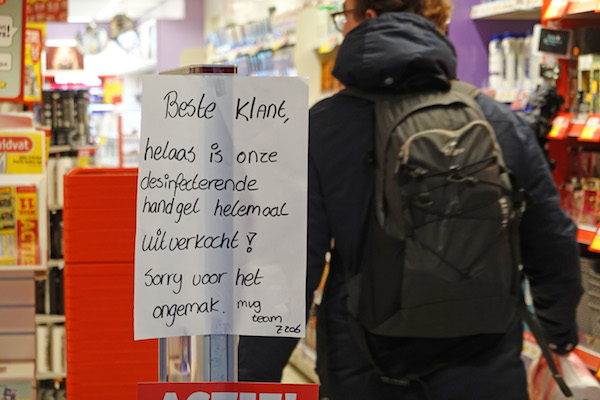 Beste Klant,
helaas is onze
desinfecterende
handgel helemaal
uitverkocht!
Sorry voor het
ongemak. mvg
team
7206
ACTIE!